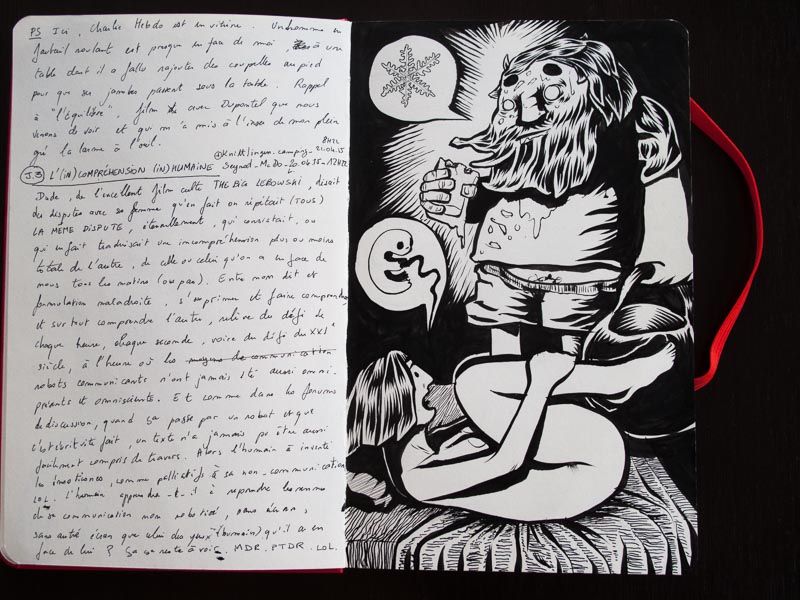 PS Ici, Charlie Hebdo est en vitrine. Un homme en
fauteuil roulant est presque en face de moi, à une
table dont il a fallu rajouter des coupelles au pied
pour que ses jambes passent sous la table. Rappel
à "l'Équilibre", film avec Dupontel que nous
venons de voir et qui m'a mis à l'insu de mon plein
gré la larme à l'oeil.
J.3 L'(IN)COMPRÉHENSION (IN)HUMAINE
Seynod _ Mc Do _ 20.04.15 _ 12H22
Dude, de l'excellent film culte THE BIG LEBOWSKI, disait
des disputes avec sa femme qu'en fait on répétait (TOUS)
LA MEME DISPUTE, éternellement, qui consistait, ou
qui en fait traduisait une incompréhension plus ou moins
totale de l'autre, de celle ou celui qu'on a en face de
nous tous les matins (ou pas). Entre non dit et
formulation maladroite, s'exprimer et faire comprendre
et surtout comprendre l'autre, relève du défi de
chaque heure, chaque seconde, voire du défi du XXIe
siècle, à l'heure où les moyens de communication
robots communicants n'ont jamais été aussi omni-
présents et omniscients. Et comme dans les forums
de discussion, quand ça passe par un robot et que
l'objectivité fait, un texte n'a jamais pu être aussi
facilement compris de travers. Alors l'humain a inventé
les émoticones, comme palliatifs à sa non-communication
LOL. L'humain apprendra-t-il à reprendre les rennes
de sa communication non robotisé, sans
sans autre écran que celui des yeux (humain) qu'il a en
face de lui ? Ça reste à voir. MDR. PTDR. LOL.